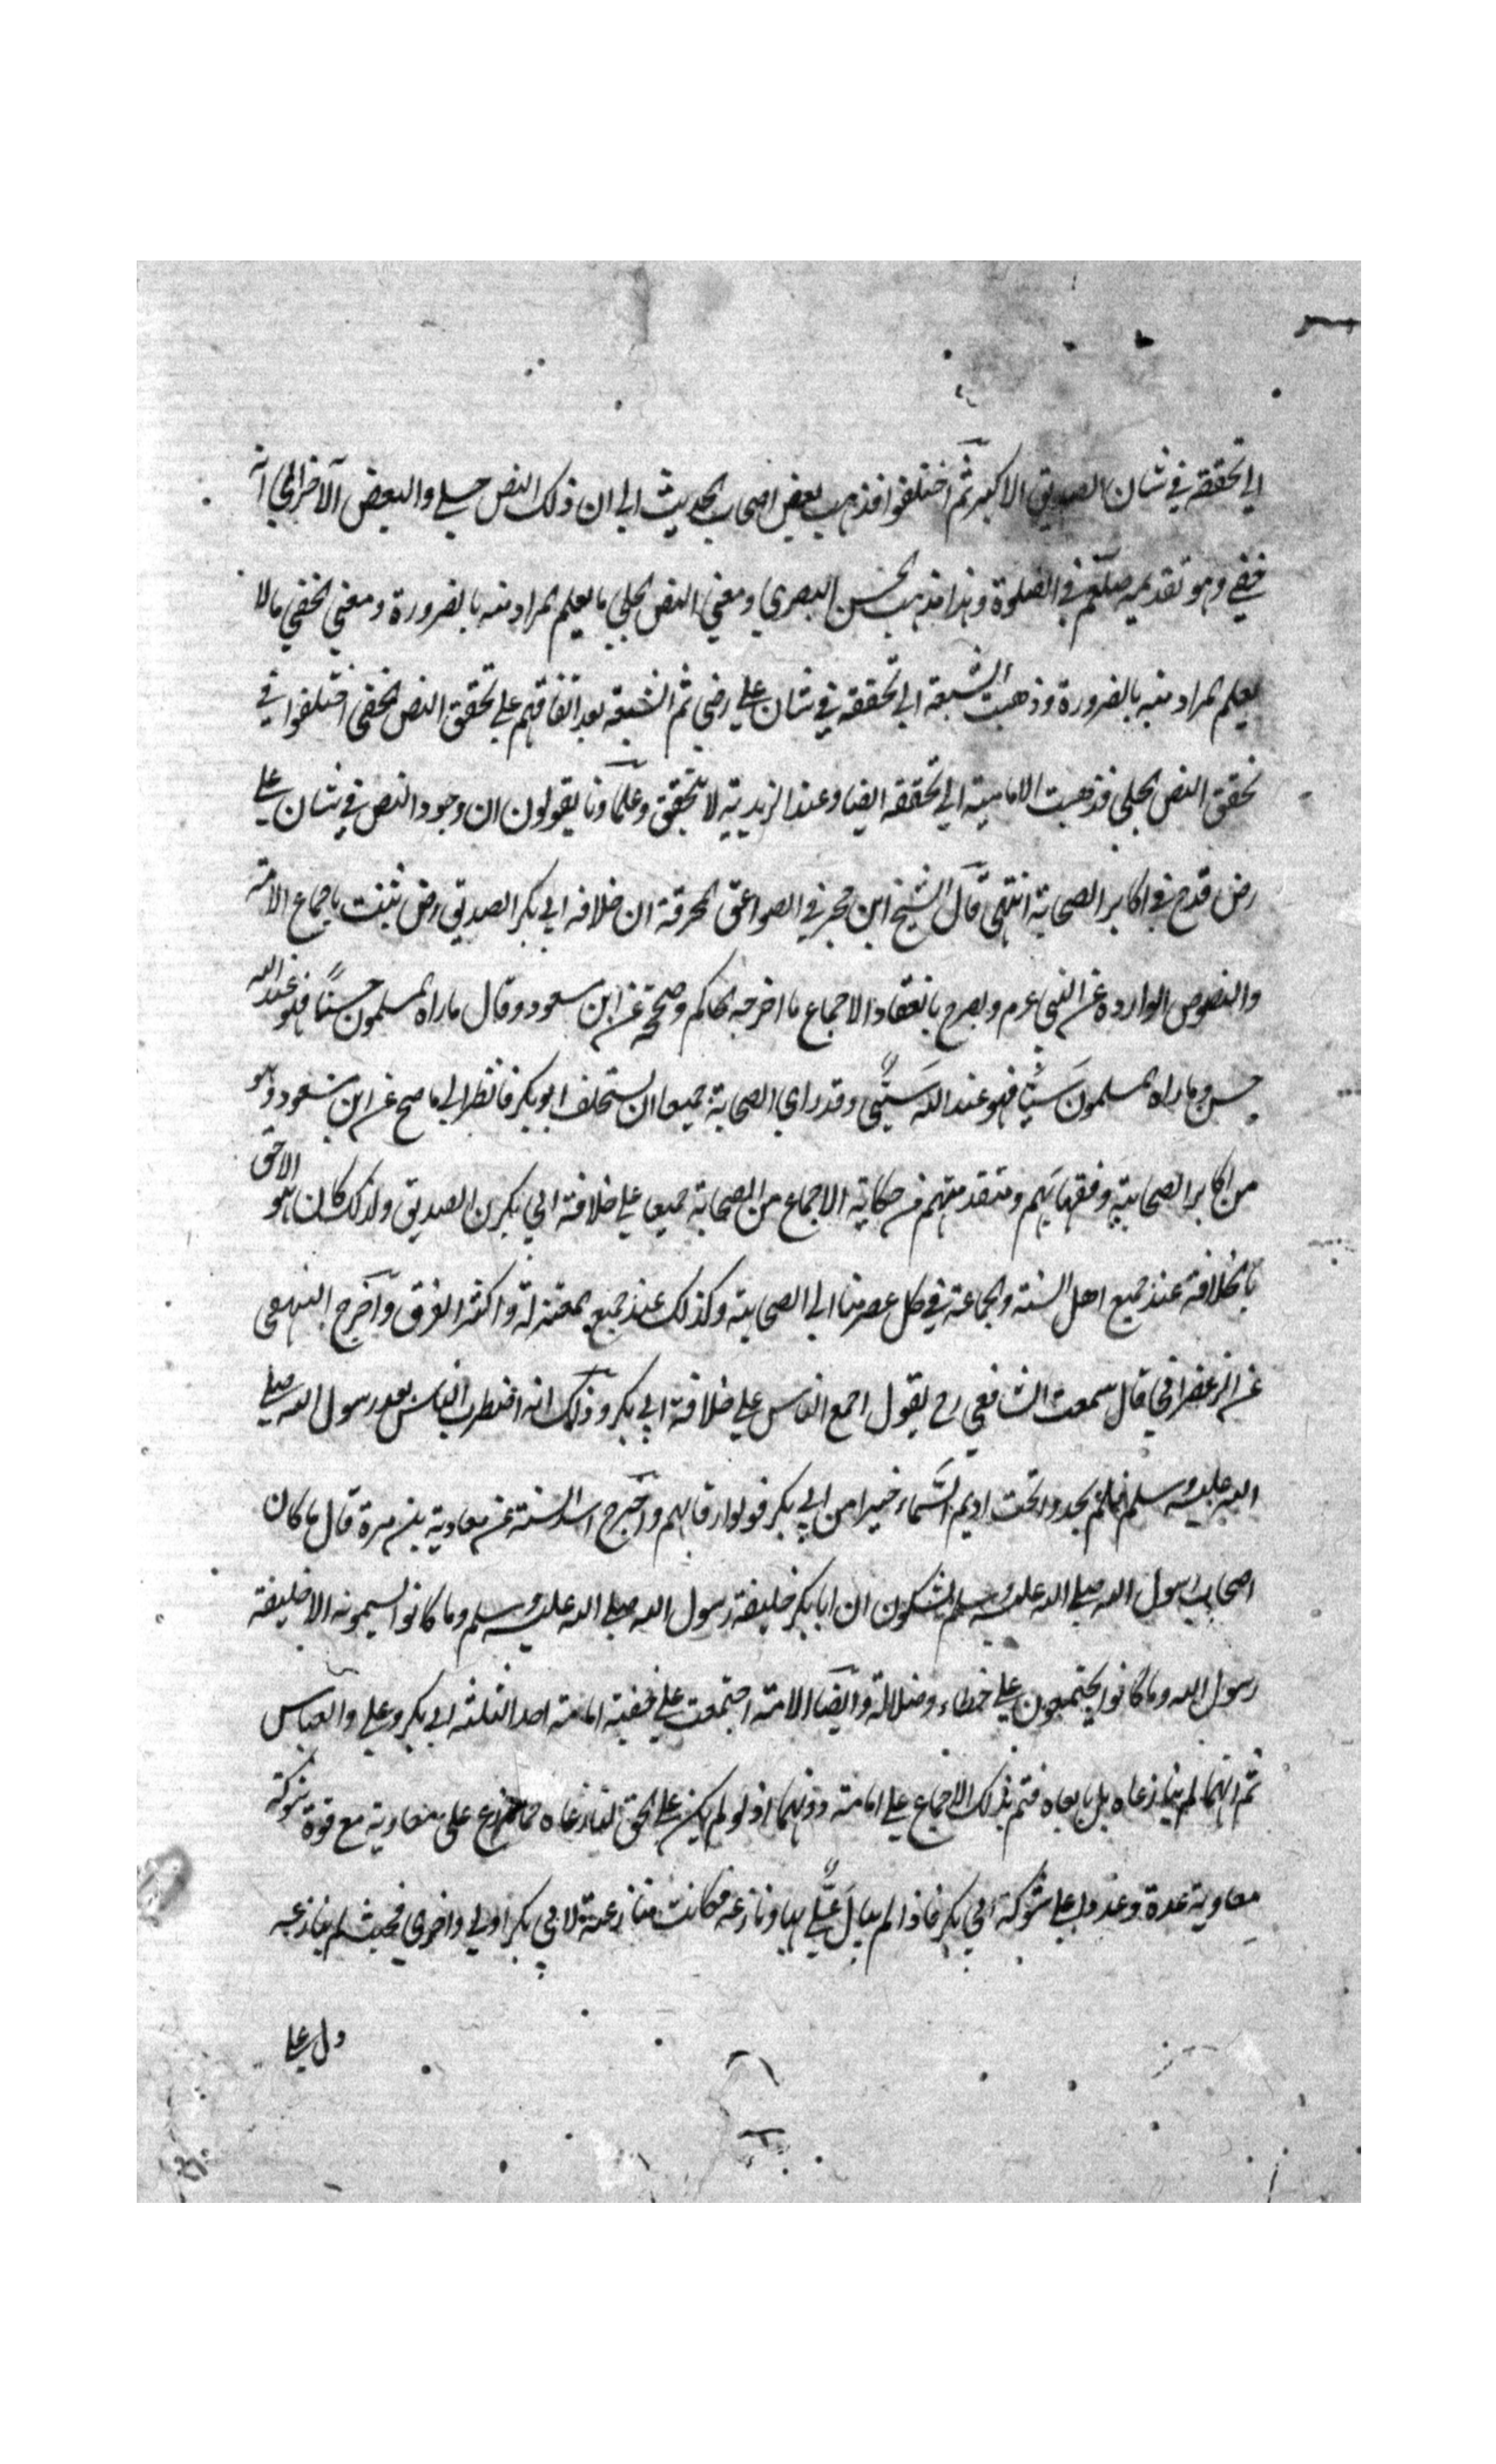 الي تحققه في شان الصديق الاكبر ثم اختلفوا فذهب بعض اصحاب الحديث الي ان ذلك النص جلي والبعض الآخر الي انه
خفي وهو تقديمه صلعم في الصلوة وهذا مذهب الحسن البصري ومعني النص الجلي ما يعلم المراد منه بالضرورة ومعني الخفي ما لا
يعلم المراد منه بالضرورة وذهبت الشيعة الي تحققه في شان علي رضي ثم الشيعة بعد اتفاقهم علي تحقق النص الخفي اختلفوا في
تحقق النص الجلي فذهبت الامامية الي تحققه ايضا وعند الزيدية لا تحقق وعلماونا يقولون ان وجود النص في شان علي
رض قدح في اكابر الصحابة انتهي قال الشيخ ابن حجر في الصواعق المحرقة ان خلافة ابي بكر الصديق رض ثبتت باجماع الامة
والنصوص الواردة عن النبي عم ويصرح بانعقاد الاجماع ما اخرجه الحاكم وصححه عن ابن مسعود وقال ما راه المسلمون حسنًا فهو عند الله
حسن وما راه المسلمون سَيّئًا فهو عند الله سَيّئ وقد راي الصحابة جميعا ان يستخلف ابو بكر فانظر الي ما صح عن ابن مسعود وهو
من اكابر الصحابة وفقهايهم ومتقدميهم من حكاية الاجماع من الصحابة جميعا علي خلافة ابي بكرن الصديق ولذلك كان هو الاحق
بالخلافة عند جميع اهل السنة والجماعة في كل عصر منا الي الصحابة وكذلك عند جميع المعتزلة واكثر الفرق وآخرج البيهقي
عن الزعفراني قال سمعت الشافعي رح يقول اجمع الناس علي خلافة ابي بكر وذلك انه اضطرب الناس بعد رسول الله صلي
الله عليه وسلم فلم يجدوا تحت اديم السَّماء خيرا من ابي بكر فولوا رقابهم وآخرج اسد السنة عن معاوية بن مرة قال ما كان
اصحاب رسول الله صلي الله عليه وسلم يشكون ان ابا بكر خليفة رسول الله صلي الله عليه وسلم وما كانوا يسمونه الا خليفة
رسول الله وما كانوا يجتمعون علي خطاء وضلالة وآيضا الامة اجتمعت علي حقية امامة احد الثلثة ابي بكر وعلي والعباس
ثم انهما لم ينازعاه بل بايعاه فتم بذلك الاجماع علي امامته دونهما اذ لو لم يكن علي الحق لنازعاه كما نازع علي معاوية مع قوة شوكة
معاوية عدة وعددا علي شوكة ابي بكر فاذا لم يبال عَلِيٌّ بها ونازعه فكانت منازعته لابي بكر اولي واحري فحيث لم ينازعه
دل علي